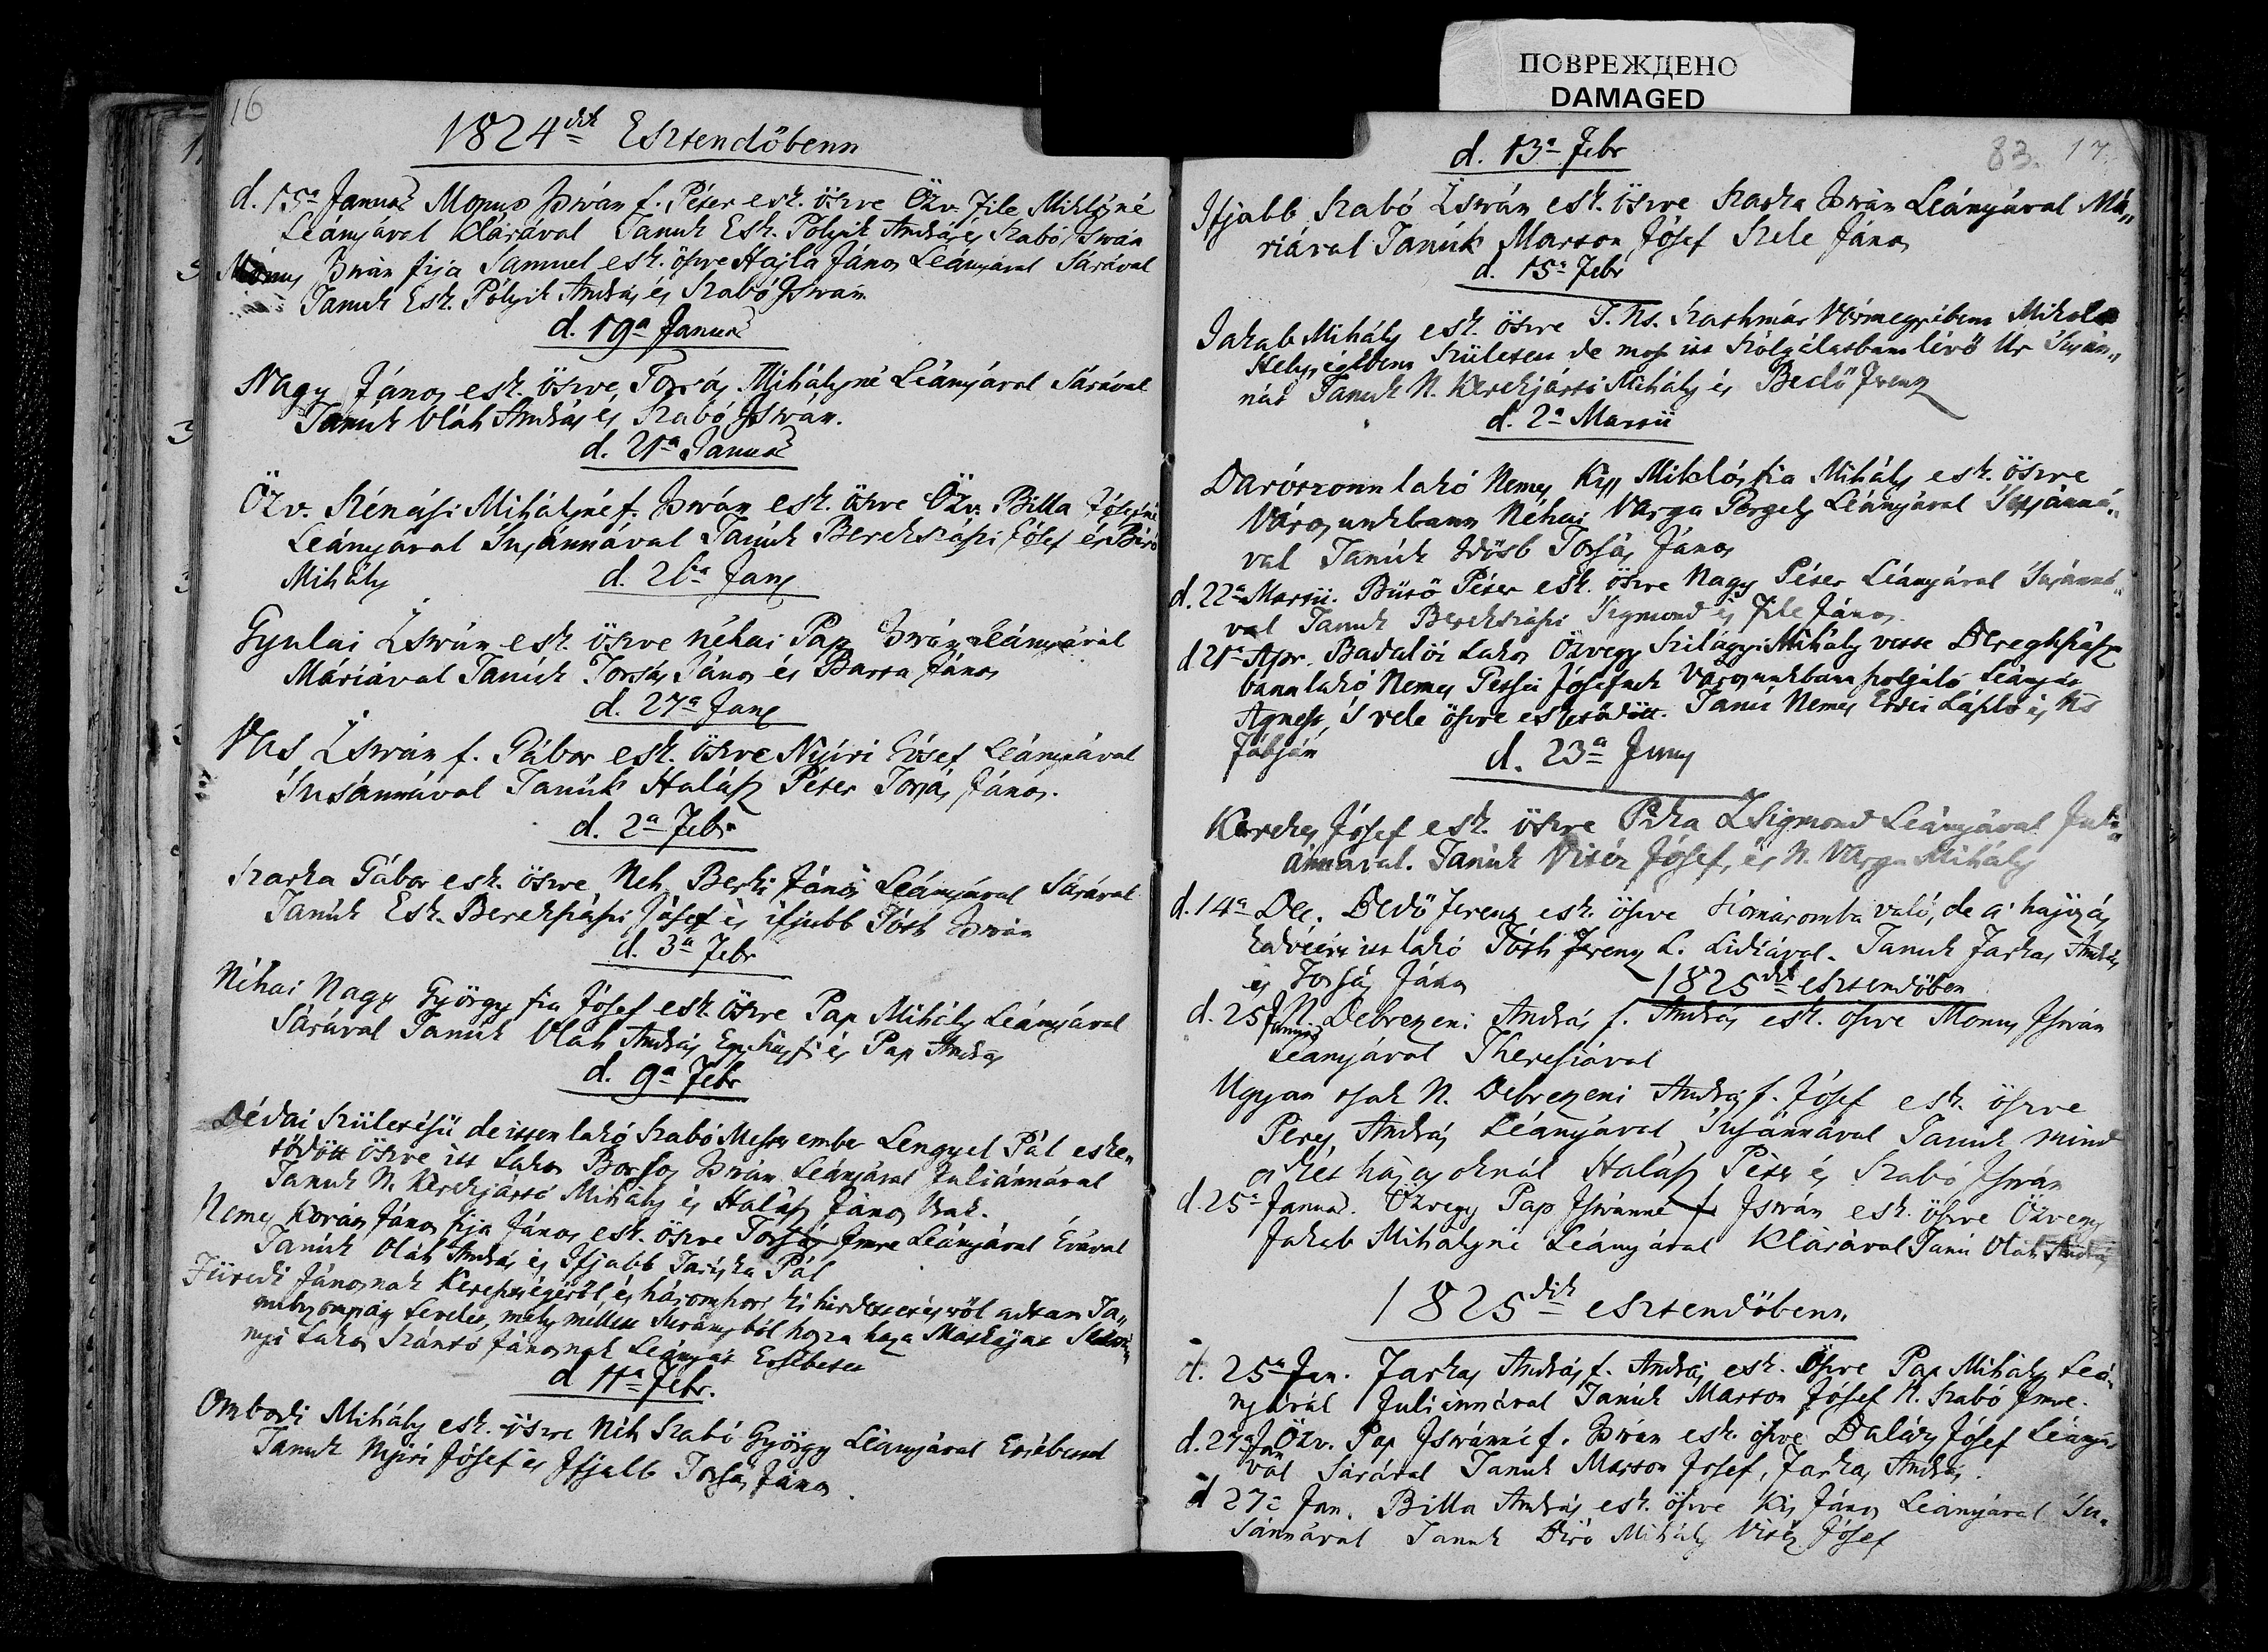 16
1824dik Esztendőbenn
d. 15a Januar Monus István f. Péter esk. öszve Özv. File Miklósné
Leányával Klárával Tanuk Esk. Pólyik András és Szabó István
Monus István fija Samuel esk. öszve Hajla János Leányával Sárával
Tanuk Esk. Pólyik András és Szabó István
d. 19a Januar
Nagy János esk. öszve Forgás Mihályné Leányával Sárával
Tanúk Oláh András és Szabó István.
d. 21a Januar
Özv. Kénási Mihályné f. István esk. öszve Özv. Billa Jósefné
Leányával Susánnával Tanúk Berekszászi Jósef és Biró
Mihály
d. 26a Jan
Gyulai István esk. öszve néhai Pap István Leányával
Máriával Tanúk Forgás János és Barta János
d. 27a Jan
Vas István f. Gábor esk. öszve Nyíri Jósef Leányával
Susánnával Tanúk Halász Péter Forgás János.
d. 2a Febr
Szarka Gábor esk. öszve Néh Berki János Leányával Sárával
Tanúk Esk. Berekszászi Jósef és ifjabb Tóth István
d. 3a Febr
Néhai Nagy György fia Jósef esk. öszve Pap Mihály Leányával
Sárával Tanúk Oláh András Egyházfi és Pap András
d. 9a Febr
Dédai Születésü de itten lakó Szabó Mester ember Lengyel Pál eske„
tődött öszve itt Lakos Borsos István Leányával Juliánnával
Tanuk N. Kerekjártó Mihály és Halász János Urak.
Nemes Kováts János fija János esk. öszve Forgás Imre Leányával Évával
Tanúk Oláh András és Ifjabb Pál
Füredi Jánosnak Keresztségéről, és háromszori ki hirdettetésről adtam Ta„
nubizonyság Levelet, mely mellett Surányból hozza haza Mátkáját Surá„
nyi Lakos Szántó Jánosnak Leányát Ersébetet
d 11a Febr.
Ombodi Mihály esk. öszve Néh Szabó György Leányával Ersébettel
Tanuk Nyiri Jósef és Ifjabb Forgás János.
ПОВРЕЖДЕНО
DAMAGED
83. 17.
d. 13a Febr
Ifjabb Szabó István esk. öszve Szarka István Leányával Má„
riával Tanúk Marton Jósef Szele János
d. 15a Febr
Jakab Mihály esk. öszve T. Ns. Szathmár Vármegyébenn Mikola
Helységébenn Született de most itt Szólgálatbann lévő Ur Susán„
nát Tanuk N. Kerekjártó Mihály és Bedő Ferenz
d. 2a Martii
Daróczonn lakó Nemes Kiss Miklós fia Mihály esk. öszve
Városunkbann Néhai Varga Gergely Leányával Susánná„
val Tanúk Idősb Forgás János
d. 22a Martii. Bütő Péter esk. öszve Nagy Péter Leányával Susánná„
val Tanuk Berekszászi Sigmond és File János.
d 21a Apr. Badalói Lakos Özvegy Szilágyi Mihály vette Beregszász
bann lakó Nemes Jósefnek Városunkbann szolgáló Leányát
Agnest, 's vele öszve eskettődött. Tanú Nemes László és Kis
Fábján
d. 23a Juny
Kerekes Jósef esk. öszve Póka Zsigmond Leányával Juli„
ánnával. Tanúk Vitéz Jósef, és N. Varga Mihály
d. 14a Dec. Bedő Ferenz esk. öszve Komáromba való, de a' hajózás
kedvéért itt lakó Tóth Ferenz L. Lidiával. Tanuk Farkas András
és Forgás János
1825dik esztendőben
d. 25 Junii N. Debrezeni András f. András esk. öszve Monus István
Leányával Theresiával
Ugyan tsak N. Debrezeni András f. Jósef esk. öszve
Péres András Leányával Susánnával Tanuk mind
a két házasoknál Halász Péter és Szabó István
d. 25a Januar. Özvegy Pap Istvánné f. István esk. öszve Özvegy
Jakab Mihályné Leányával Klárával Tanú Oláh András
1825dik esztendőbenn.
d. 25a Jan. Farkas András f. András esk. öszve Pap Mihály Leá„
nyával Juliánnával Tanúk Marton Jósef N. Szabó Imre.
d. 27a Jan Özv. Pap Istvánné f. István esk. öszve Balázs Jósef Leányá
val Sárával Tanuk Marton Josef, Farkas András.
d 27a Jan. Billa András esk. öszve Kis János Leányával Su„
sánnával Tanuk Biró Mihály Vitéz Jósef